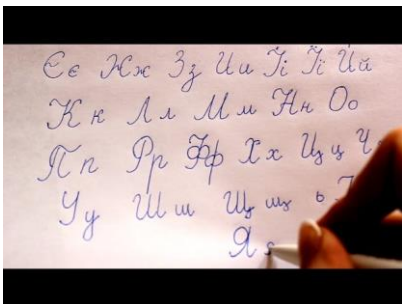 Єє Жж Зз Ии Іі Її Йй
Кк Лл Мм Нн Оо
Пп Рр Фф Хх Цц Ч
Уу Шш Щщ ь
Я